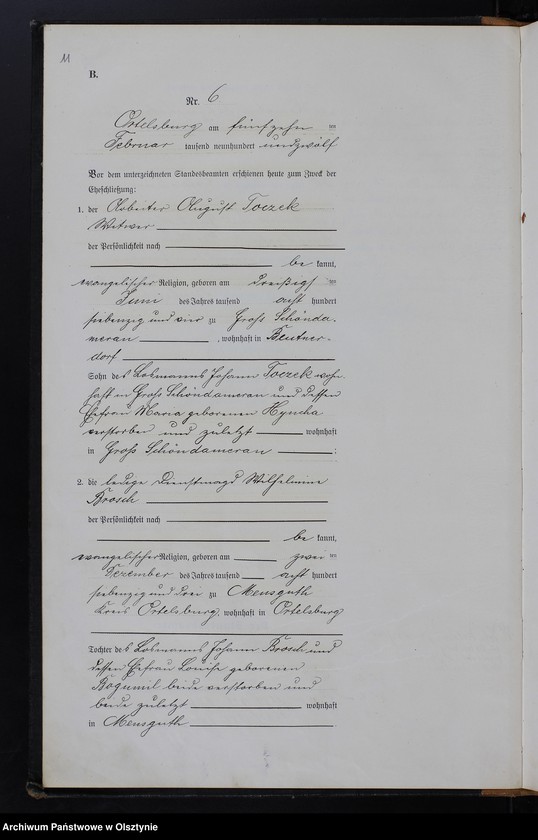 11
B.
Nr. 6
Ortelsburg am fünfzehn ten
Februar tausend neunhundert undzwölf
Vor dem unterzeichneten Standesbeamten erschienen heute zum Zweck der
Eheschließung:
1. der Arbeiter August Toczek
Witwer
der Persönlichkeit nach
be kannt,
evangelischer Religion, geboren am dreißigst en
Juni des Jahres tausend acht hundert
siebenzig und vier zu Groß Schönda-
meran , wohnhaft in Beutner-
dorf
Sohn des Losmanns Johann Toczek wohn-
haft in Groß Schöndameran und dessen
Ehefrau Maria geborenen
verstorben und zuletzt wohnhaft
in Groß Schöndameran :
2. die ledige Dienstmagd Wilhelmine
Brosch
der Persönlichkeit nach
be kannt,
evangelischer Religion, geboren am zwei ten
Dezember des Jahres tausend acht hundert
siebenzig und drei zu Mensguth
Kreis Ortelsburg, wohnhaft in Ortelsburg
Tochter des Losmanns Johann Brosch und
dessen Ehefrau Louise geborenen
Bogumil beide verstorben und
beide zuletzt wohnhaft
in Mensguth
Archiwum Państwowe w Olsztynie